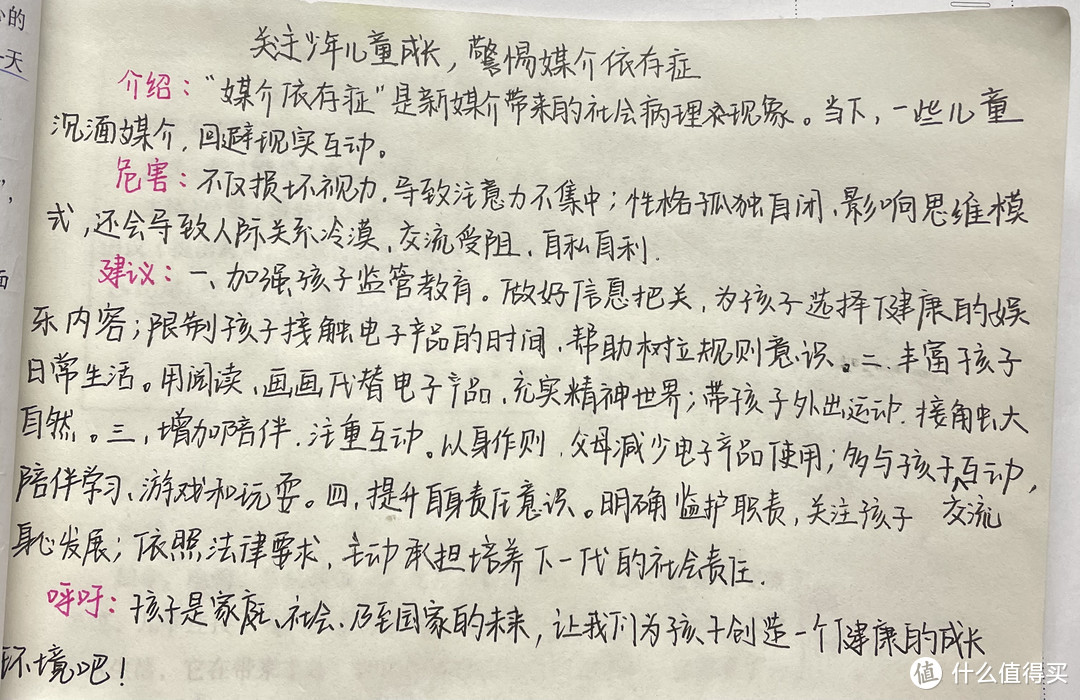 关注少年儿童成长，警惕媒介依存症
介绍："媒介依存症"是新媒介带来的社会病理现象。当下，一些儿童
沉湎媒介，回避现实互动。
危害：不仅损坏视力、导致注意力不集中；性格孤独自闭、影响思维模
式，还会导致人际关系冷漠、交流受阻、自私自利.
建议：一、加强孩子监管教育。做好信息把关，为孩子选择健康的娱
乐内容；限制孩子接触电子产品的时间、帮助树立规则意识。二、丰富孩子
日常生活。用阅读、画画代替电子产品，充实精神世界；带孩子外出运动、接触大
自然。三，增加陪伴、注重互动。以身作则，父母减少电子产品使用；多与孩子互动，
陪伴学习、游戏和玩耍。四，提升自身责任意识。明确监护职责，关注孩子 交流
身心发展；依照法律要求，主动承担培养下一代的社会责任.
呼吁：孩子是家庭、社会、乃至国家的未来，让我们为孩子创造一个健康的成长
环境吧！
的
天
它在带来
值 什么值得买